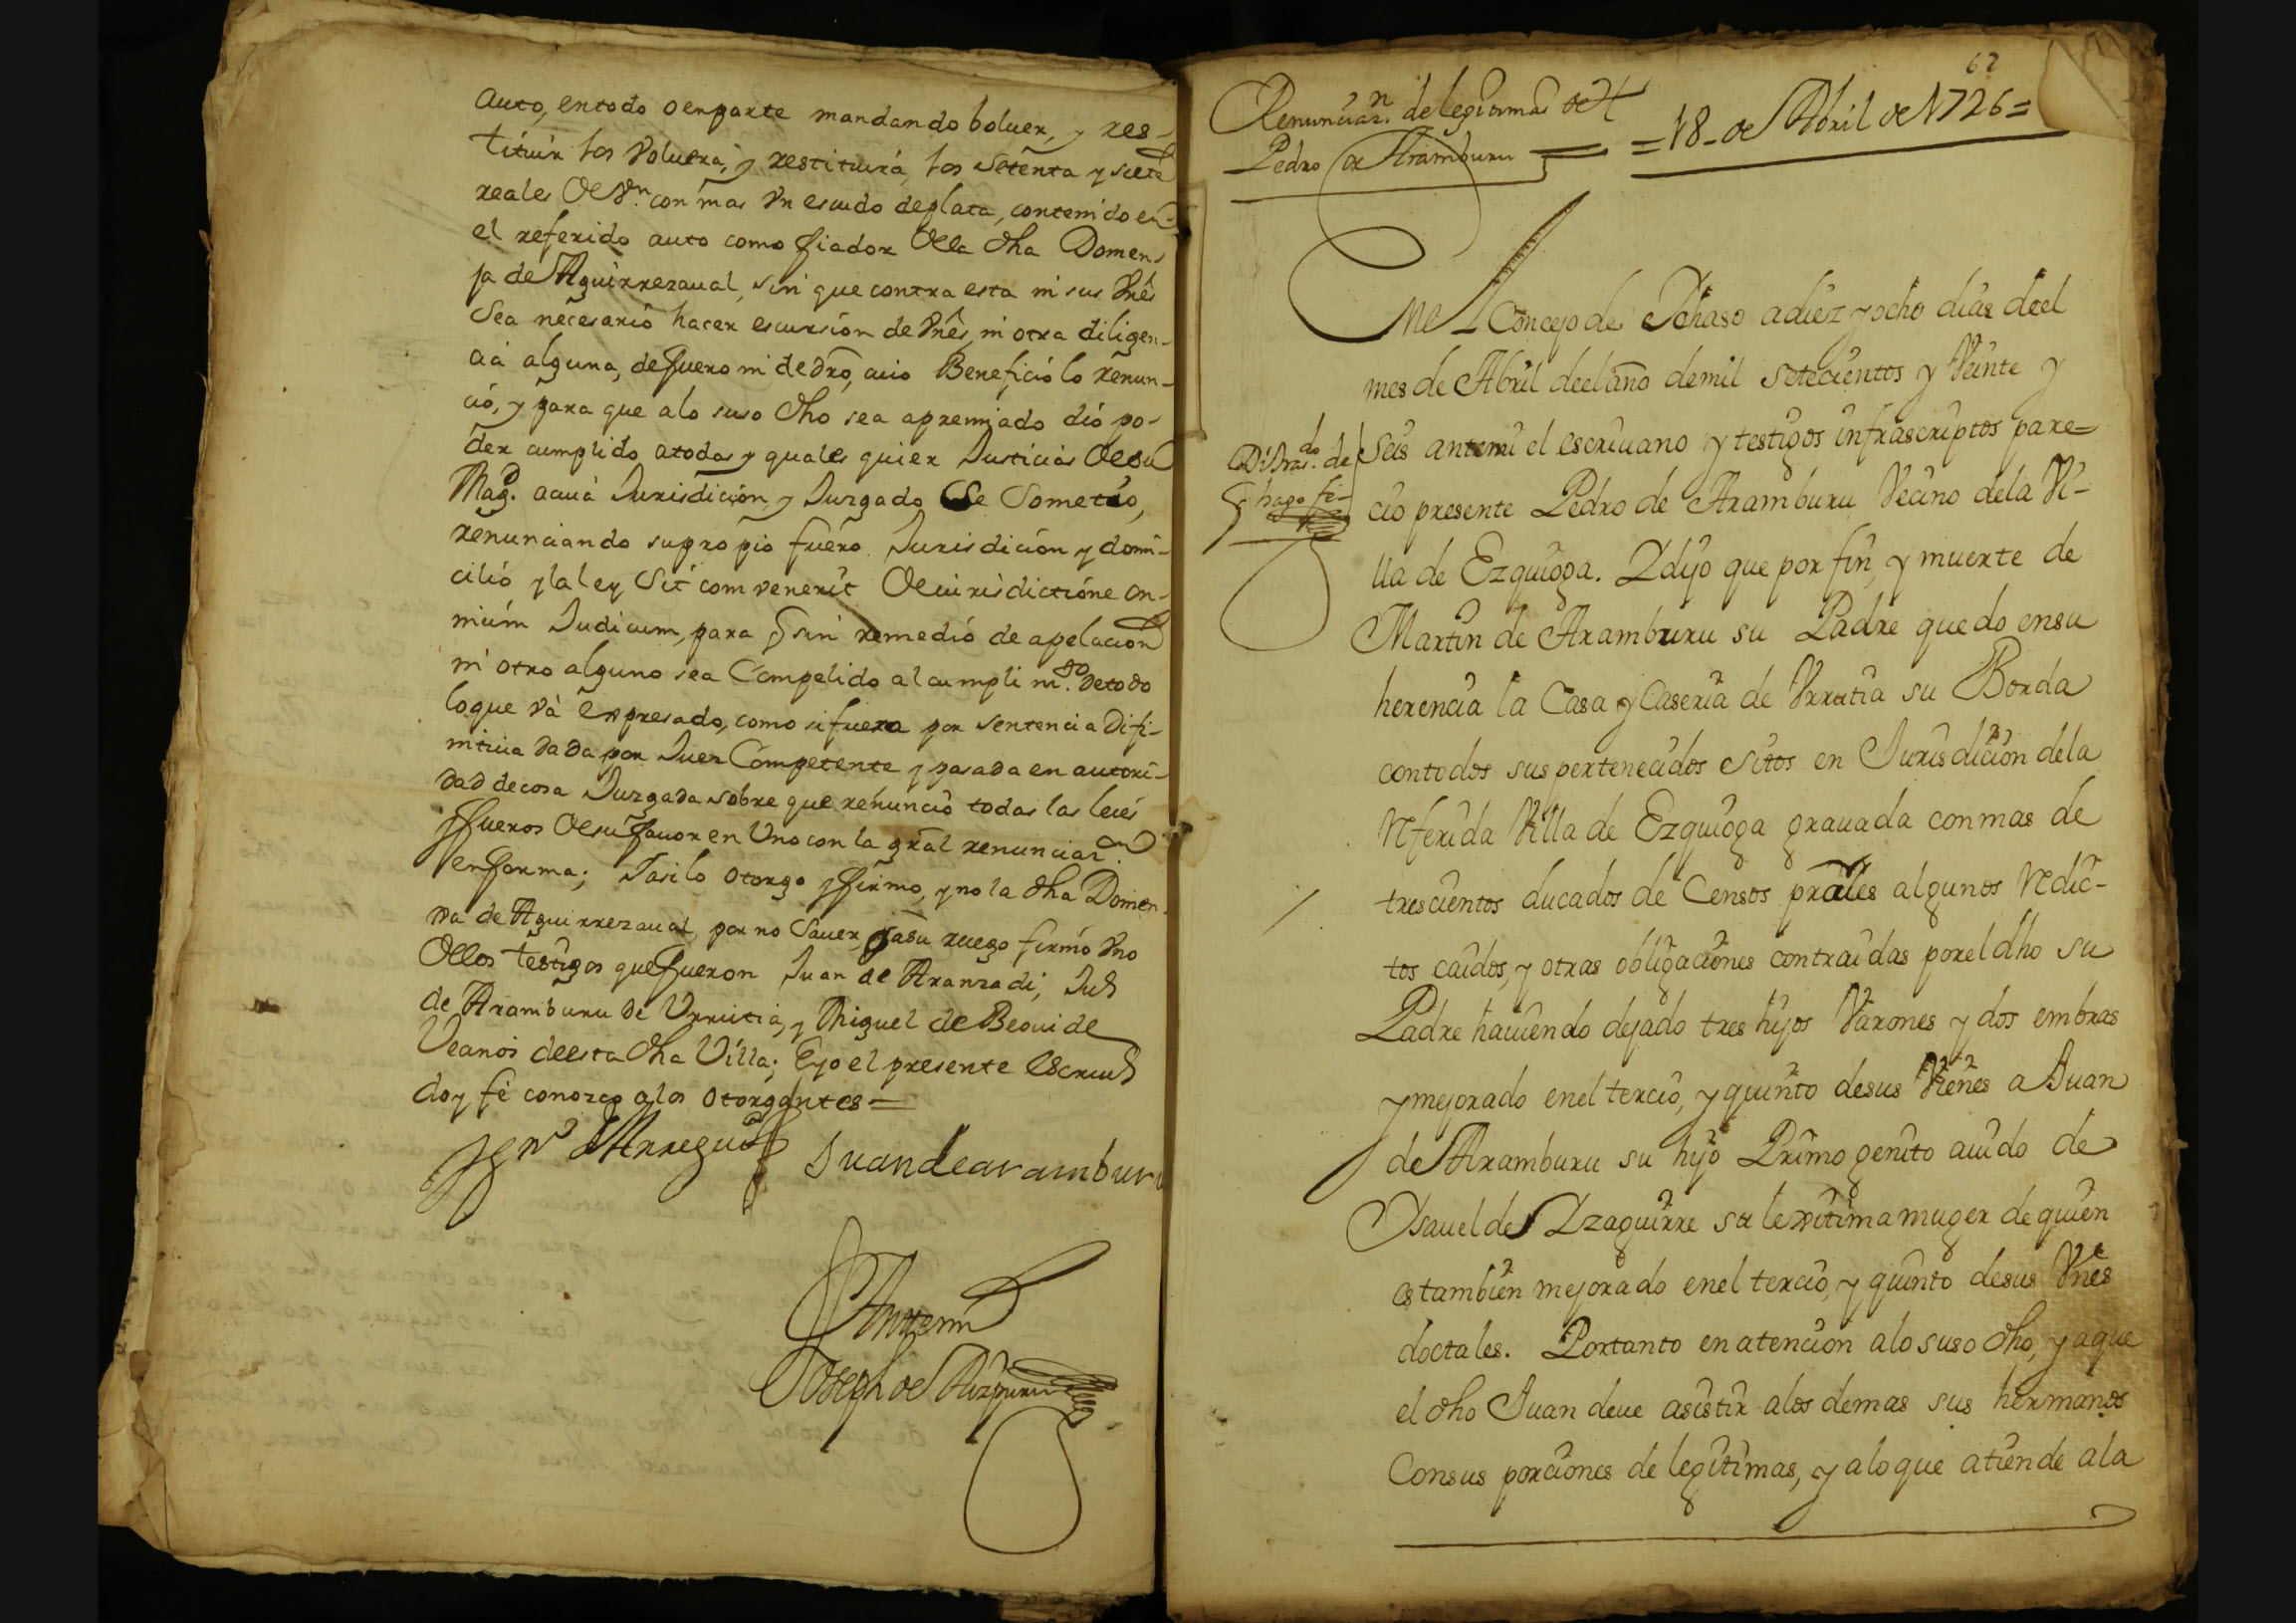 auto, entodo o enparte mandando boluer, y res-
tituir los voluera, y restituira, los setenta y siete
reales de Vn. con mas Vn escudo de plata, contenido en
el referido auto como fiador de la dha Domen-
ja de Aguirrezaual, sin que contra esta ni sus Vnês
sea necesario hacer escursion de Vnês, ni otra diligen-
cia alguna, de fuero ni de dr̃o, cuio Beneficio lo renun-
ció, y para que alo suso dho sea apremiado dió po-
der cumplido atodas y quales quier Justicias de su
Magd. a cuia Jurisdicion y Juzgado se Sometio,
renunciando su propio fuero Jurisdicion y domi-
cilio y la ley Sit com venerit de iurisdictione on-
nium Judicum, para q̃ sin remedio de apelacion
ni otro alguno sea Compelido al cumplim.to de todo
loque vá expresado, como si fuera por sentencia difi-
nitiua dada por Juez Competente y pasada en autori-
dad de cosa Juzgada sobre que renuncio todas las leies
y fueros de su fauor en Uno con la gr̃al renunciazon.
enforma; Y asi lo otorgo y firmo, y no la dha Domen-
ja de Aguirrezaual, por no Sauer, y asu ruego firmó Vno
de los testigos que fueron Juan de Aranzadi, Juo
de Aramburu de Vrrutia, y Miguel de Beguide
Vecinos de esta dha Villa; E yo el presente escriuo
doy fé conozco a los otorgantes =
Juan de aramburu
Antemi
Joseph de Aizpuru
62
Renunciazn. de legitimas de
Pedro de Aramburu = = 18 - de Abril de 1726 =
En el Concejo de Ichaso a diez y ocho dias deel
mes de Abril deel año de mil setecientos y Veinte y
seis antemi el escriuano y testigos infrascriptos pare=
do. de
hago fe-
cio presente Pedro de Aramburu Vecino dela Vi-
lla de Ezquioga. Y dijo que por fin, y muerte de
Martin de Aramburu su Padre quedo ensu
herencia la Casa y Caseria de Vrrutia su Borda
contodos sus pertenecidos sitos en Jurisdicion dela
referida Villa de Ezquioga grauada conmas de
trescientos ducados de Censos prãles algunos redic-
tos caidos, y otras obligaciones contraidas porel dho su
Padre hauiendo dejado tres hijos Varones y dos embras
y mejorado enel tercio, y quinto desus Vienes a Juan
de Aramburu su hijo Primo genito auido de
Ysauel de Yzaguirre su lexitima muger de quien
es tambien mejorado enel tercio, y quinto desus Vnês
doctales. Portanto en atencion alo suso dho, y aque
el dho Juan deue asistir alos demas sus hermanos
Consus porciones de legitimas, y aloque atiende ala